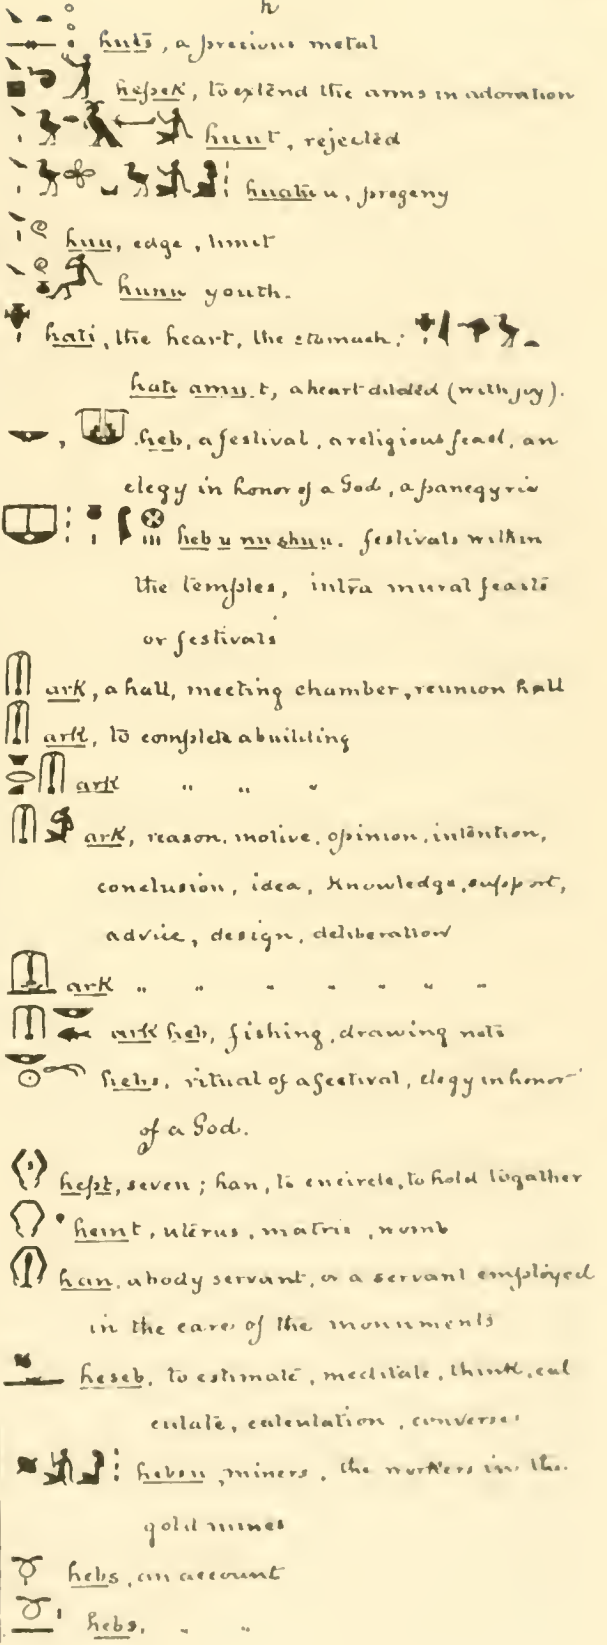 h
huts, a precious metal
hepek, to extend the arms in adoration
huut, rejected
huatu u, progeny
huu, edge, limit
hunu youth.
hati, the heart, the stomach;
hati amu.t, a heart dilated (with joy).
, heb, a festival, a religious feast, an
elegy in honor of a God, a panegyric
heb u nu shuu. festivals within
the temples, intra mural feasts
or festivals
ark, a hall, meeting chamber, reunion hall
ark, to complete a building
ark " " "
ark, reason, motive, opinion, intention,
conclusion, idea, knowledge, support,
advice, design, deliberation
ark " " " " " "
ark heb, fishing, drawing nets
hebs, ritual of a festival, elegy in honor
of a God.
hept, seven; han, to encircle, to hold together
hemt, uterus, matrix, womb
han, a body servant, or a servant employed
in the care of the monuments
heseb, to estimate, meditate, think, cal
culate, calculation, converse
hebsu, miners, the workers in the
gold mines
hebs, an account
hebs, " "